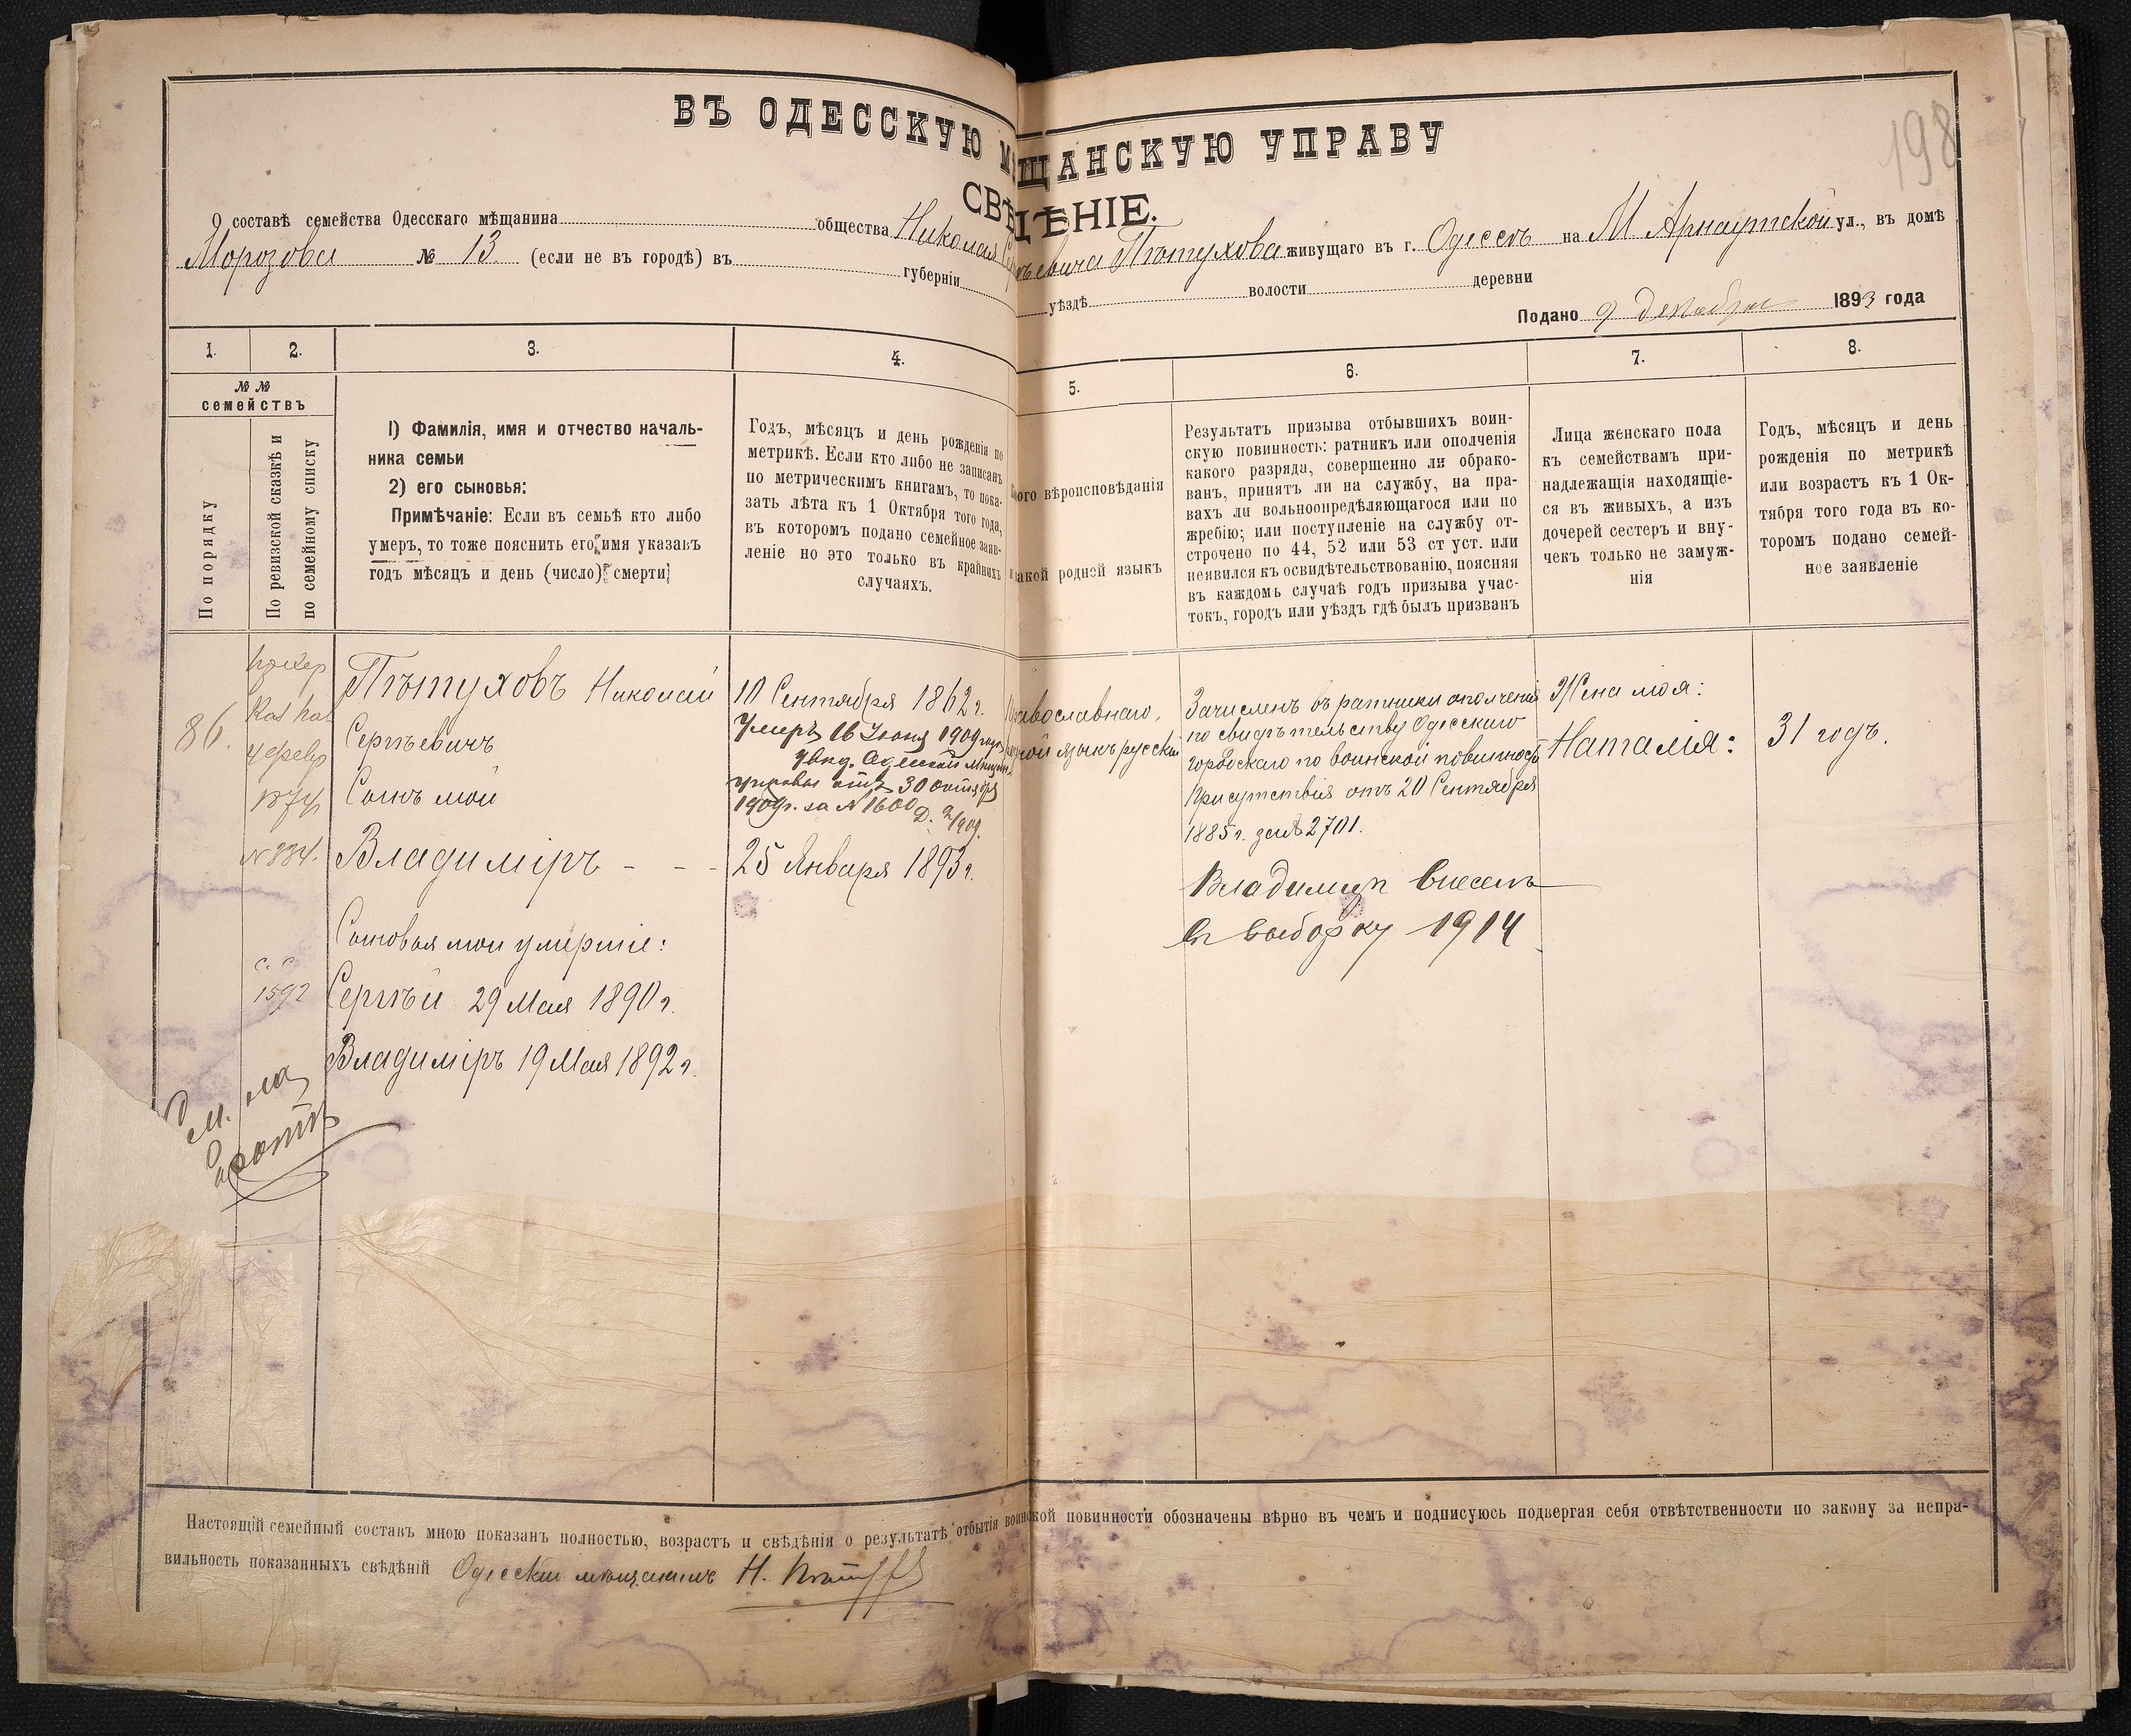 198
ВЪ ОДЕССКУЮ М ЩАНСКУЮ УПРАВУ
СВѢДѢНІЕ.
О составѣ семейства Одесскаго мѣщанина общества Николая Сергѣевича Пѣтухова живущаго въ г. Одессѣ на М. Арнаутской ул., въ домѣ
Морозова № 13 (если не въ городѣ) въ губерніи уѣздѣ волости деревни
Подано 9 Декабря 1893 года
1. 2. 3. 4. 5. 6. 7. 8.
№ №
семействъ
По порядку
По ревизской сказкѣ и
по семейному списку
1) Фамилія, имя и отчество началь-
ника семьи
2) его сыновья:
Примѣчаніе: Если въ семьѣ кто либо
умеръ, то тоже пояснить его имя указавъ
годъ мѣсяцъ и день (число) смерти
Годъ, мѣсяцъ и день рожденія по
метрикѣ. Если кто либо не записанъ
по метрическимъ книгамъ, то пока-
зать лѣта къ 1 Октября того года,
въ которомъ подано семейное заяв-
леніе но это только въ крайнихъ
случаяхъ.
вѣроисповѣданія
родной языкъ
Результатъ призыва отбывшихъ воин-
скую повинность: ратникъ или ополченія
какого разряда, совершенно ли обрако-
ванъ, принятъ ли на службу, на пра-
вахъ ли вольноопредѣляющагося или по
жребію; или поступленіе на службу от-
строчено по 44, 52 или 53 ст уст. или
неявился къ освидѣтельствованію, поясняя
въ каждомъ случаѣ годъ призыва учас-
токъ, городъ или уѣздъ гдѣ былъ призванъ
Лица женскаго пола
къ семействамъ при-
надлежащія находящіе-
ся въ живыхъ, а изъ
дочерей сестеръ и вну-
чекъ только не замуж-
нія
Годъ, мѣсяцъ и день
рожденія по метрикѣ
или возрастъ къ 1 Ок-
тября того года въ ко-
торомъ подано семей-
ное заявленіе
86.
1874
№ 334.
с. с.
1592
Пѣтуховъ Николай
Сергѣевичъ
Сынъ мой
Владиміръ - - -
Сыновья мои умершіе:
Сергѣй 29 Мая 1890 г.
Владиміръ 19 Мая 1892 г.
10 Сентября 1862 г.
Умеръ 16 Іюня 1909 года
увѣд. Одесской Мѣщан.
управы отъ 30 октября
1909 г. за № 1600 Д. 2/909.
25 Января 1893 г.
Православнаго,
родной языкъ русскій
Зачисленъ въ ратники ополченія
по свидѣтельству Одесскаго
городскаго по воинской повинности
Присутствія отъ 20 Сентября
1885 г. за № 2701.
Владимиръ внесенъ
въ выборку 1914
Жена моя:
Наталія:
31 годъ.
Настоящій семейный составъ мною показанъ полностью, возрастъ и свѣдѣнія о результатѣ отбытія воинской повинности обозначены вѣрно въ чемъ и подписуюсь подвергая себя отвѣтственности по закону за непра-
вильность показанныхъ свѣдѣній Одесскій мѣщанинъ Н.